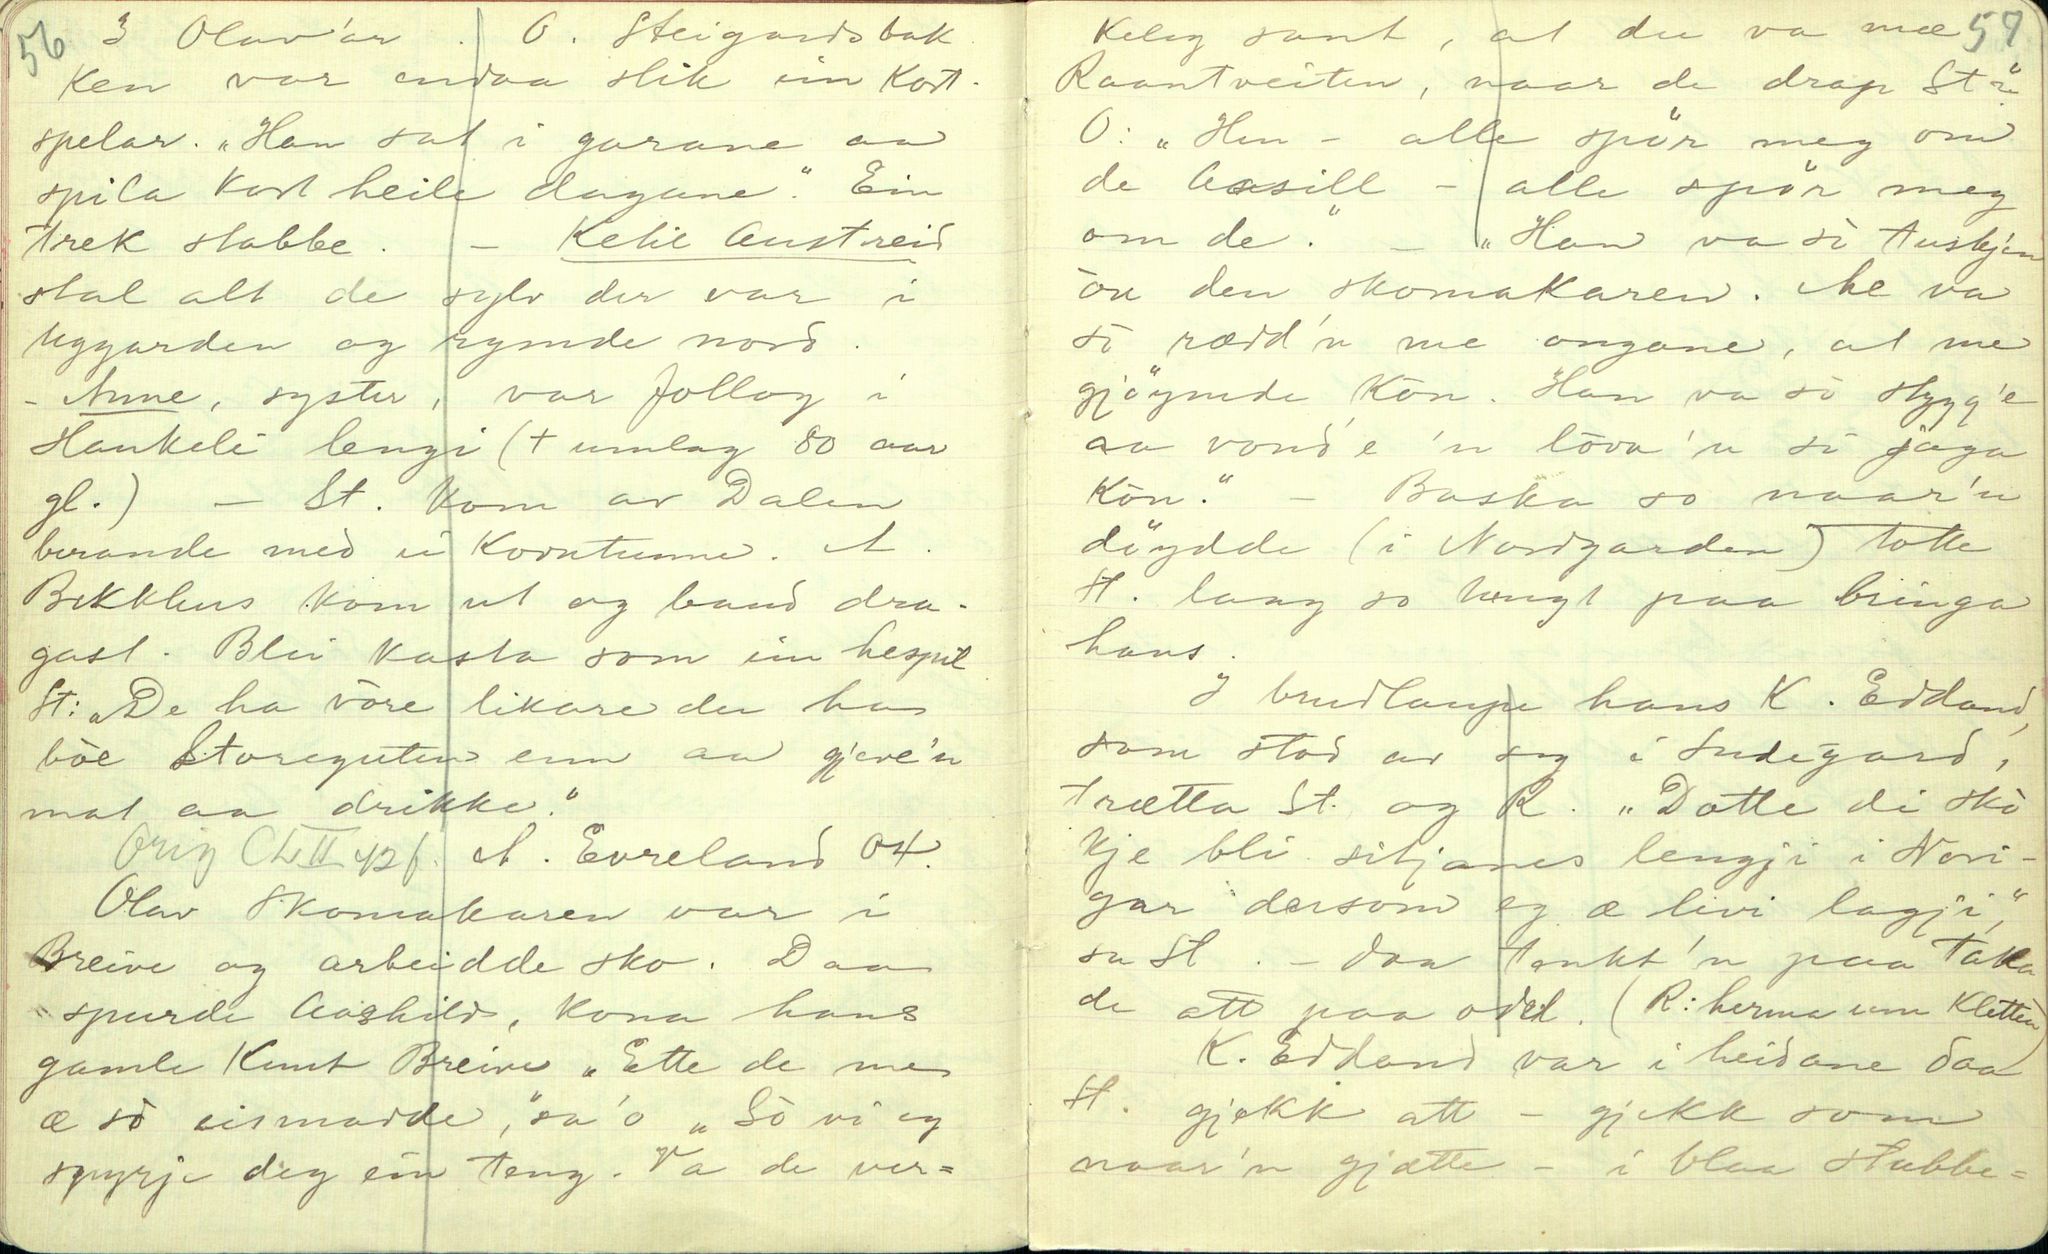 56
3 Olav'ar. O. Steigardsbak
ken var endaa slik ein kort-
spelar. „Han sat i garane aa
spila kort heile dagane." Ein
trek stabbe. — Ketil Austreid
stal alt de sylv der var i
Uggarden og rymde nord.
- Anne, syster, var follog i
Haukeli lengi (+ umlag 80 aar
gl.) — St. kom av Dalen
berande med ei korntunne. A.
Bekkhus kom ut og baud dra-
gast. Blei kasta som ein hespil
St: „De ha vòre likare du ha
bòe Storeguten enn aa gjeve'n
mat aa drikke."
Orig CLII 42 f. A. Evreland 04.
Olav Skomakaren var i
Breive og arbeidde sko. Daa
spurde Aashild, kona hans
gamle Knut Breive „Ette de me
æ sò eismadde," sa'o „Sò vi eg
spyrje deg ein teng. Va de ver=
57
keleg sant, at du va mæ
Raantveiten, naar de drap St."
O: „Hm - alle spör meg om
de Aasill - alle spör meg
om de." — „Han va sì tuskjen
òu den skomakaren. Me va
sì rædd'n me ongane, at me
gjöymde kòn. Han va sì stygg'e
aa vond'e 'n lòva'n sì jaga
kòn." — Baska so naar'n
döydde (i Nordgarden) totte
St. laag so tungt paa bringa
hans.
I brudlaupe hans K. Eddand,
som stod av seg i Sudegard,
trætta St. og R. „Dotte di skò
kje bli sitjanes lengji i Nori-
gar dersom eg æ livi lagji,"
sa St. - Daa tenkt'n paa taka
de att paa odel. (R: herma um Kletten)
K. Eddand var i heidane daa
St. gjekk att - gjekk som
naar'n gjætte - i blaa stubbe=